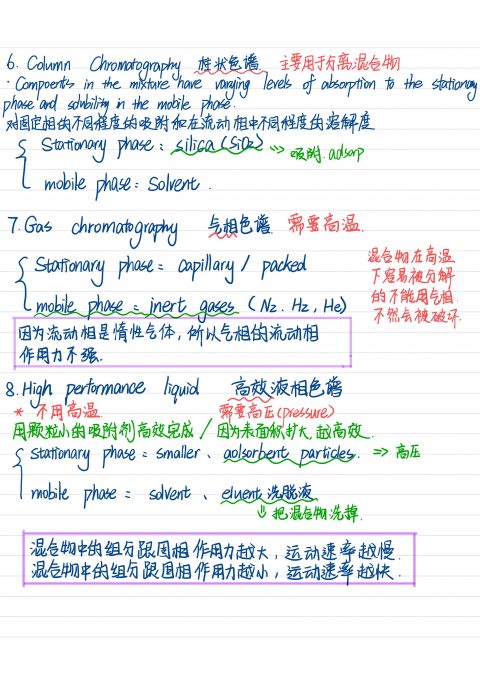 6. Column Chromatography 柱状色谱. 主要用于分离混合物
· Compoents in the mixture have varying levels of absorption to the stationary
phase and solubility in the mobile phase.
对固定相的不同程度的吸附和在流动相中不同程度的溶解度
Stationary phase: silica (SiO2) => 吸附. adsorp
mobile phase: Solvent.
7. Gas chromatography 气相色谱 需要高温.
Stationary phase = capillary / packed
mobile phase = inert gases (N2. H2, He)
混合物在高温
下容易被分解
的不能用气相
不然会被破坏.
因为流动相是惰性气体, 所以气相的流动相
作用力不强.
8. High performance liquid 高效液相色谱
* 不用高温. 需要高压(pressure)
用颗粒小的吸附剂高效完成 / 因为表面积扩大, 越高效.
stationary phase = smaller、adsorbent particles. => 高压
mobile phase = solvent、eluent 洗脱液
把混合物洗掉.
混合物中的组分跟固相作用力越大, 运动速率越慢.
混合物中的组分跟固相作用力越小, 运动速率越快.